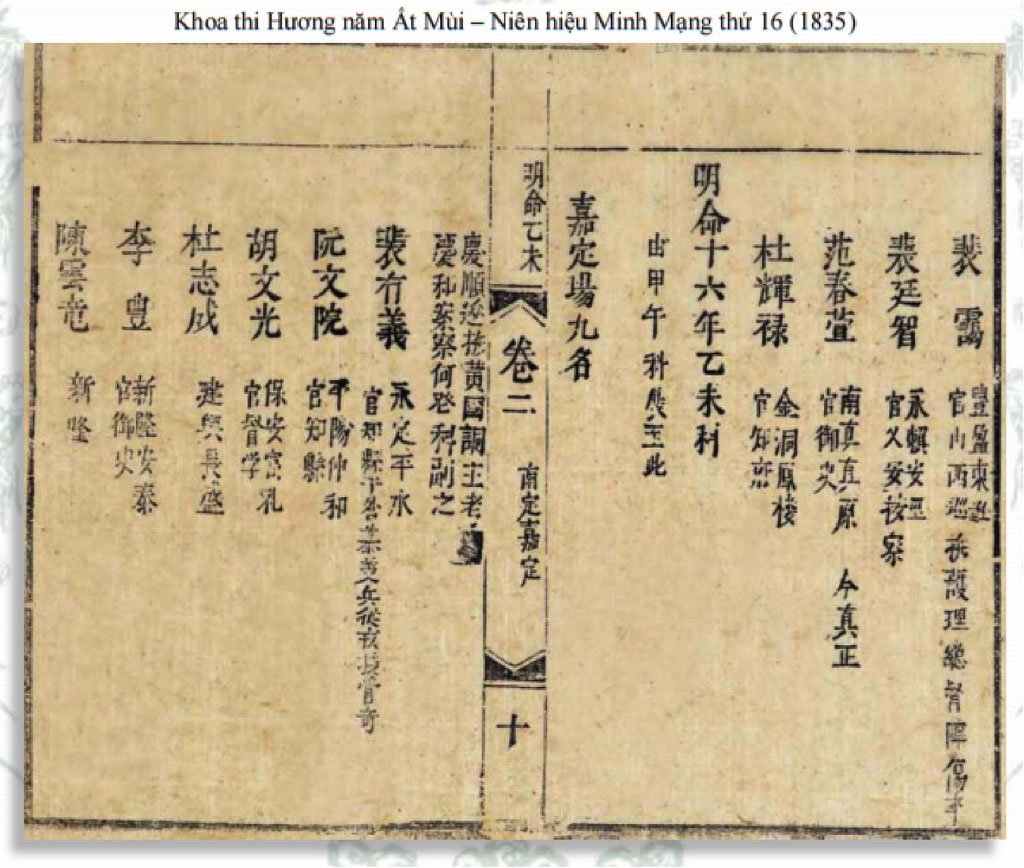 Khoa thi Hương năm Ất Mùi – Niên hiệu Minh Mạng thứ 16 (1835)
裴靄
豐盈東
官山西巡撫護理總督陣傷卒
裴廷智
永賴安
官乂安按察
范春萱
南真真原 今真正
官御史
杜輝祿
金洞鳳樓
官知
明命十六年乙未科
由甲午科展至此
嘉定場九名
明命乙未
卷二
南定嘉定
十
慶順巡撫黃國調主考
慶和案察何登科副之
裴有義
永定平水
官知縣
阮文院
平陽仲和
官知縣
胡文光
保安富
官督學
杜志成
建興長盛
李豊
新隆安泰
官御史
陳雲竜
新隆